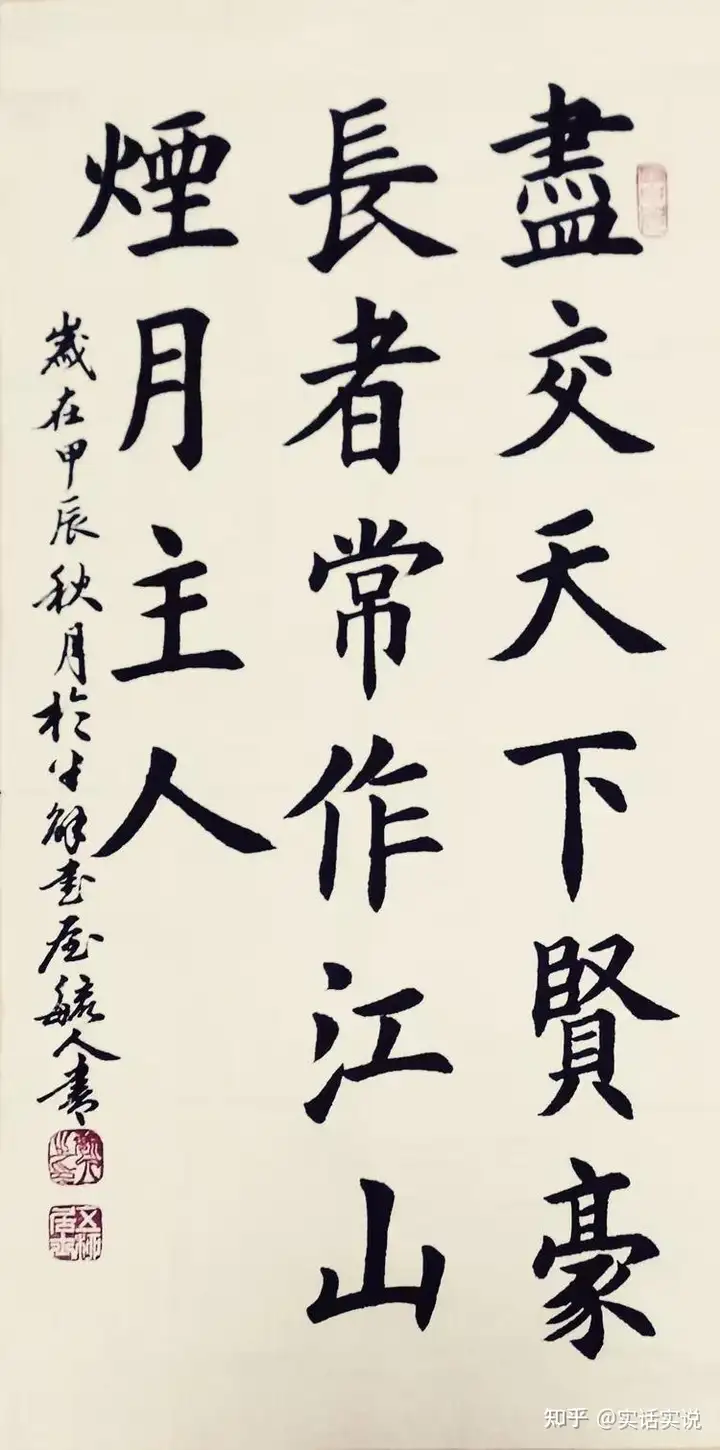 盡交天下賢豪
長者常作江山
煙月主人
歲在甲辰秋月於半解書屋毓人書
知乎 @实话实说